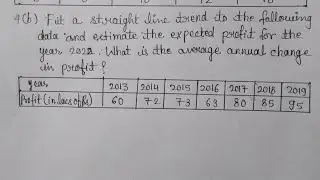 4(b) Fit a straight line trend to the following
data and estimate the expected profit for the
year 2022. What is the average annual change
in profit?
year 2013 2014 2015 2016 2017 2018 2019
Profit (in lacs of Rs) 60 72 73 63 80 85 95